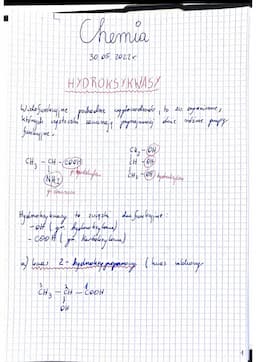 Chemia
30.05.2022r
HYDROKSYKWASY
Wielofunkcyjne pochodne węglowodorów, to zw. organiczne,
których cząsteczki zawierają przynajmniej dwie różne grupy
funkcyjne.
CH3 - CH - COOH
NH2
CH2 - OH
CH - OH
CH2 - OH
Hydroksykwasy to związki dwufunkcyjne:
- OH (gr. hydroksylowa)
- COOH (gr. karboksylowa)
a) kwas 2-hydroksypropanowy (kwas mlekowy)
CH3 - CH - COOH
OH